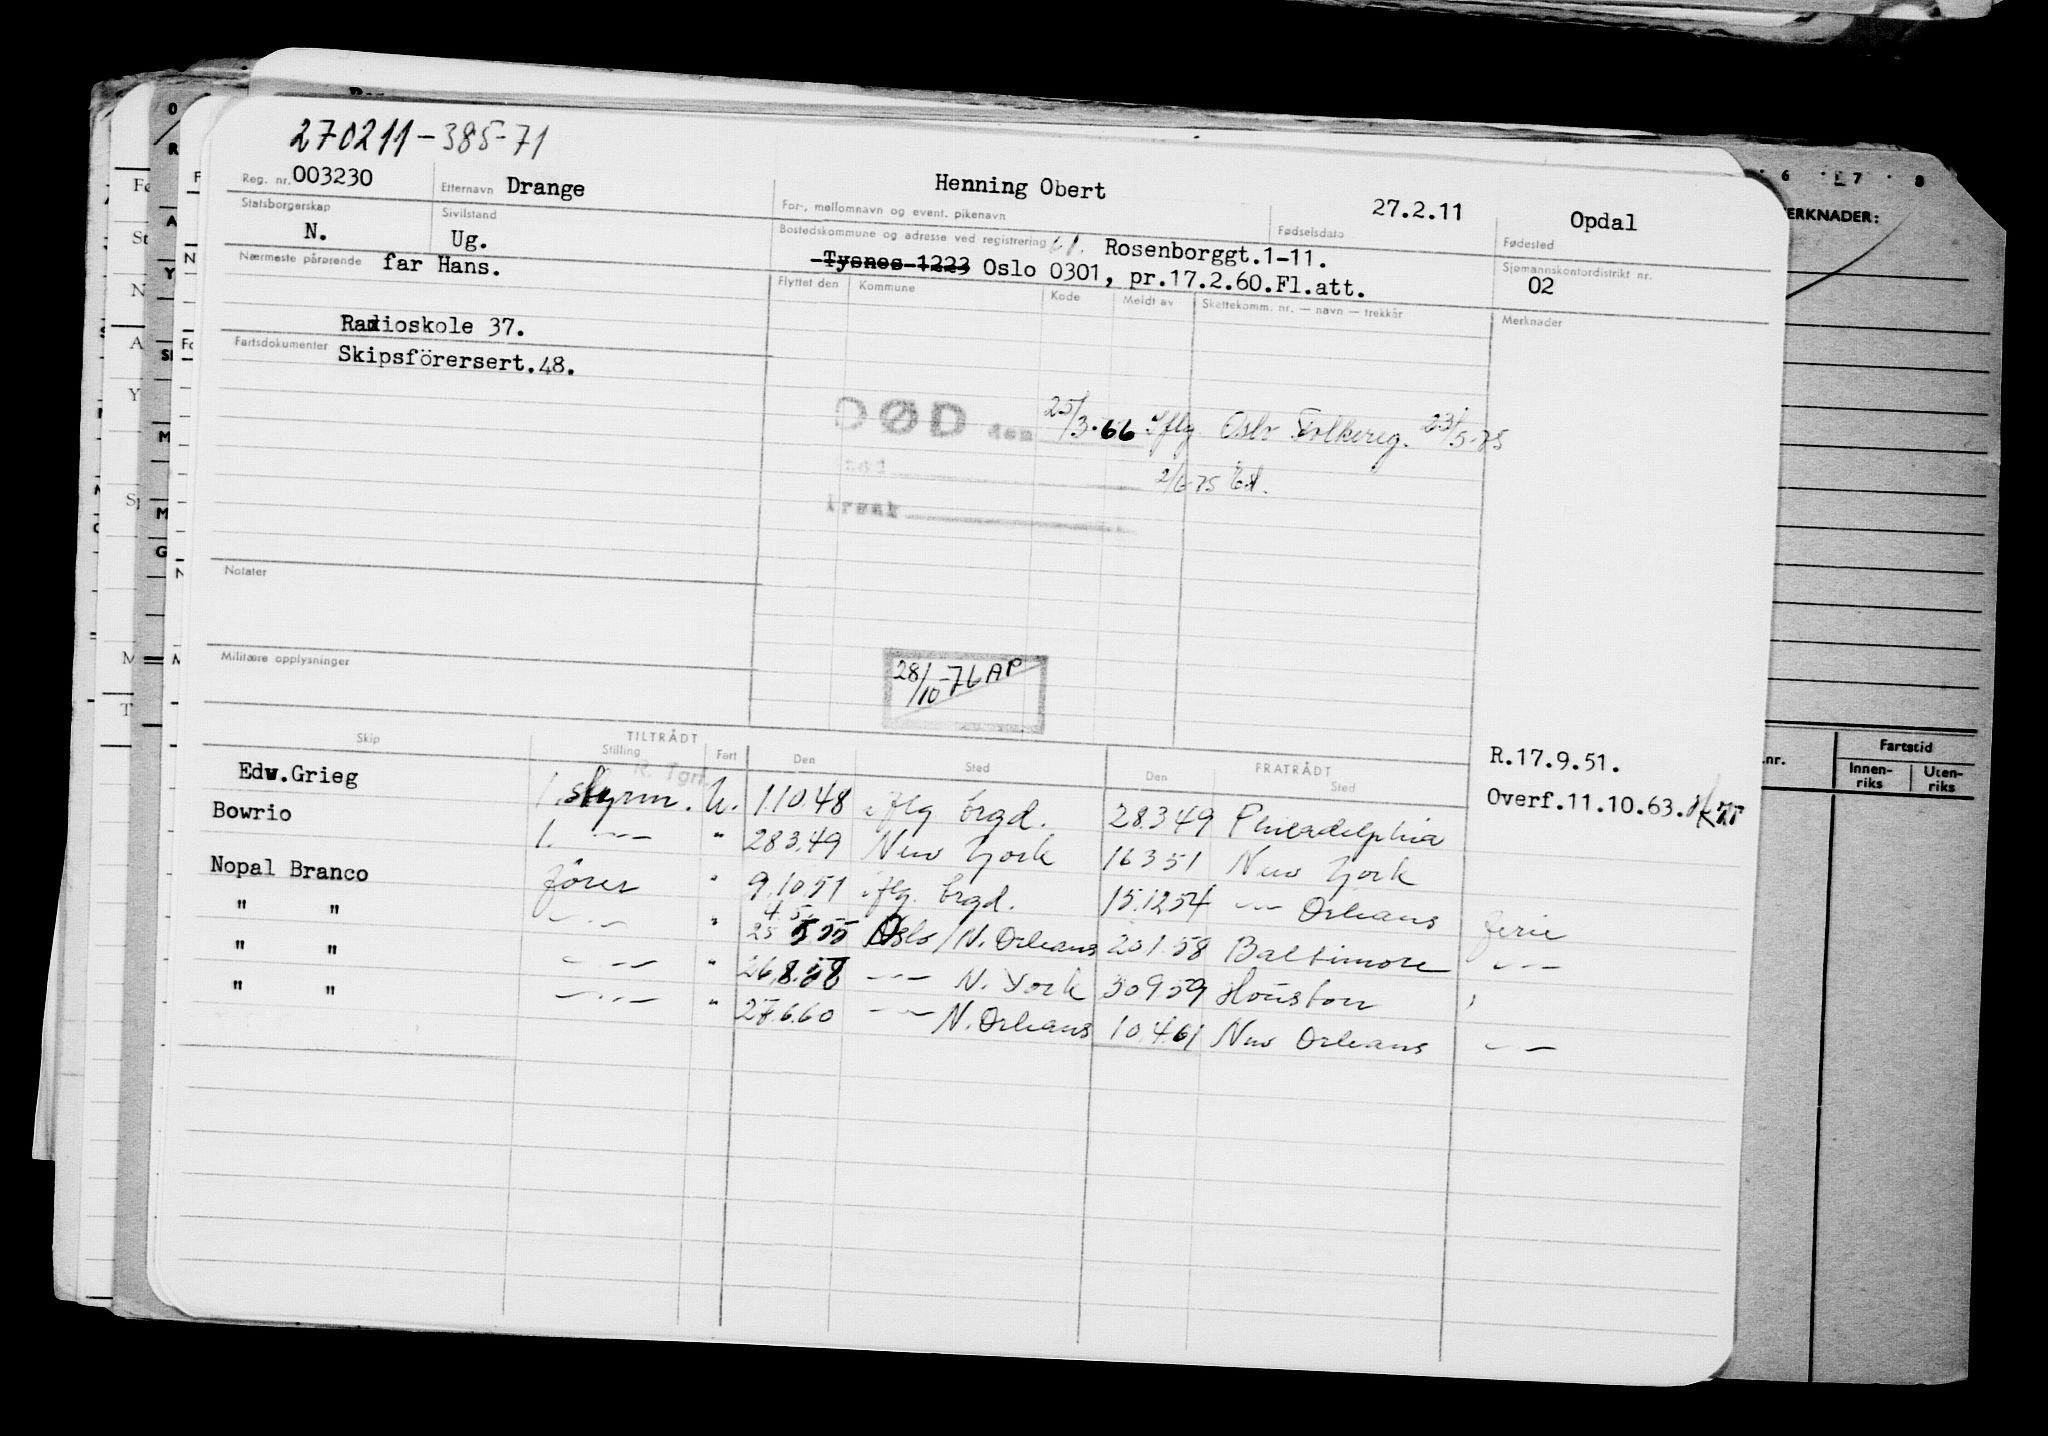 270211-385-71
Reg. nr. 003230 Etternavn Drange Henning Obert 27.2.11 Opdal
For-, mellomnavn og event. pikenavn Fødselsdato Fødested
Statsborgerskap N. Sivilstand Ug. Bostedskommune og adresse ved registrering 61. Rosenborggt.1-11.
Tysnes 1223 Oslo 0301, pr.17.2.60.Fl.att. Sjømannskontordistrikt nr. 02
Nærmeste pårørende far Hans.
Flyttet den Kommune Kode Meldt av Skattekomm. nr. — navn — trekkår Merknader
Radioskole 37.
Fartsdokumenter Skipsförersert.48.
DØD den 25/3.66 Iflg. Oslo Folkereg. 23/5-75
2/6 75
Notater
Militære opplysninger
28/10-76 AP
Skip TILTRÅDT FRATRÅDT
Stilling Fart Den Sted Den Sted
R. Tgr.
R.17.9.51.
Overf.11.10.63.
Edw.Grieg 1. styrm. U. 1.10.48 iflg brgd. 28.3.49 Philadelphia
Bowrio 1. —"— " 28.3.49 New York 16.3.51 New York
Nopal Branco fører " 9.10.51 iflg. brgd. 15.12.54 —"— Orleans ferie
" " —"— " 4.5. 25 5 55 Oslo/N. Orleans 20.1.58 Baltimore —"—
" " —"— " 26.8.58 —"— N. York 30.9.59 Houston "
" " —"— " 28.6.60 —"— N. Orleans 10.4.61 New Orleans —"—
6 7 8
ERKNADER:
.nr. Fartstid
Innen-riks Uten-riks